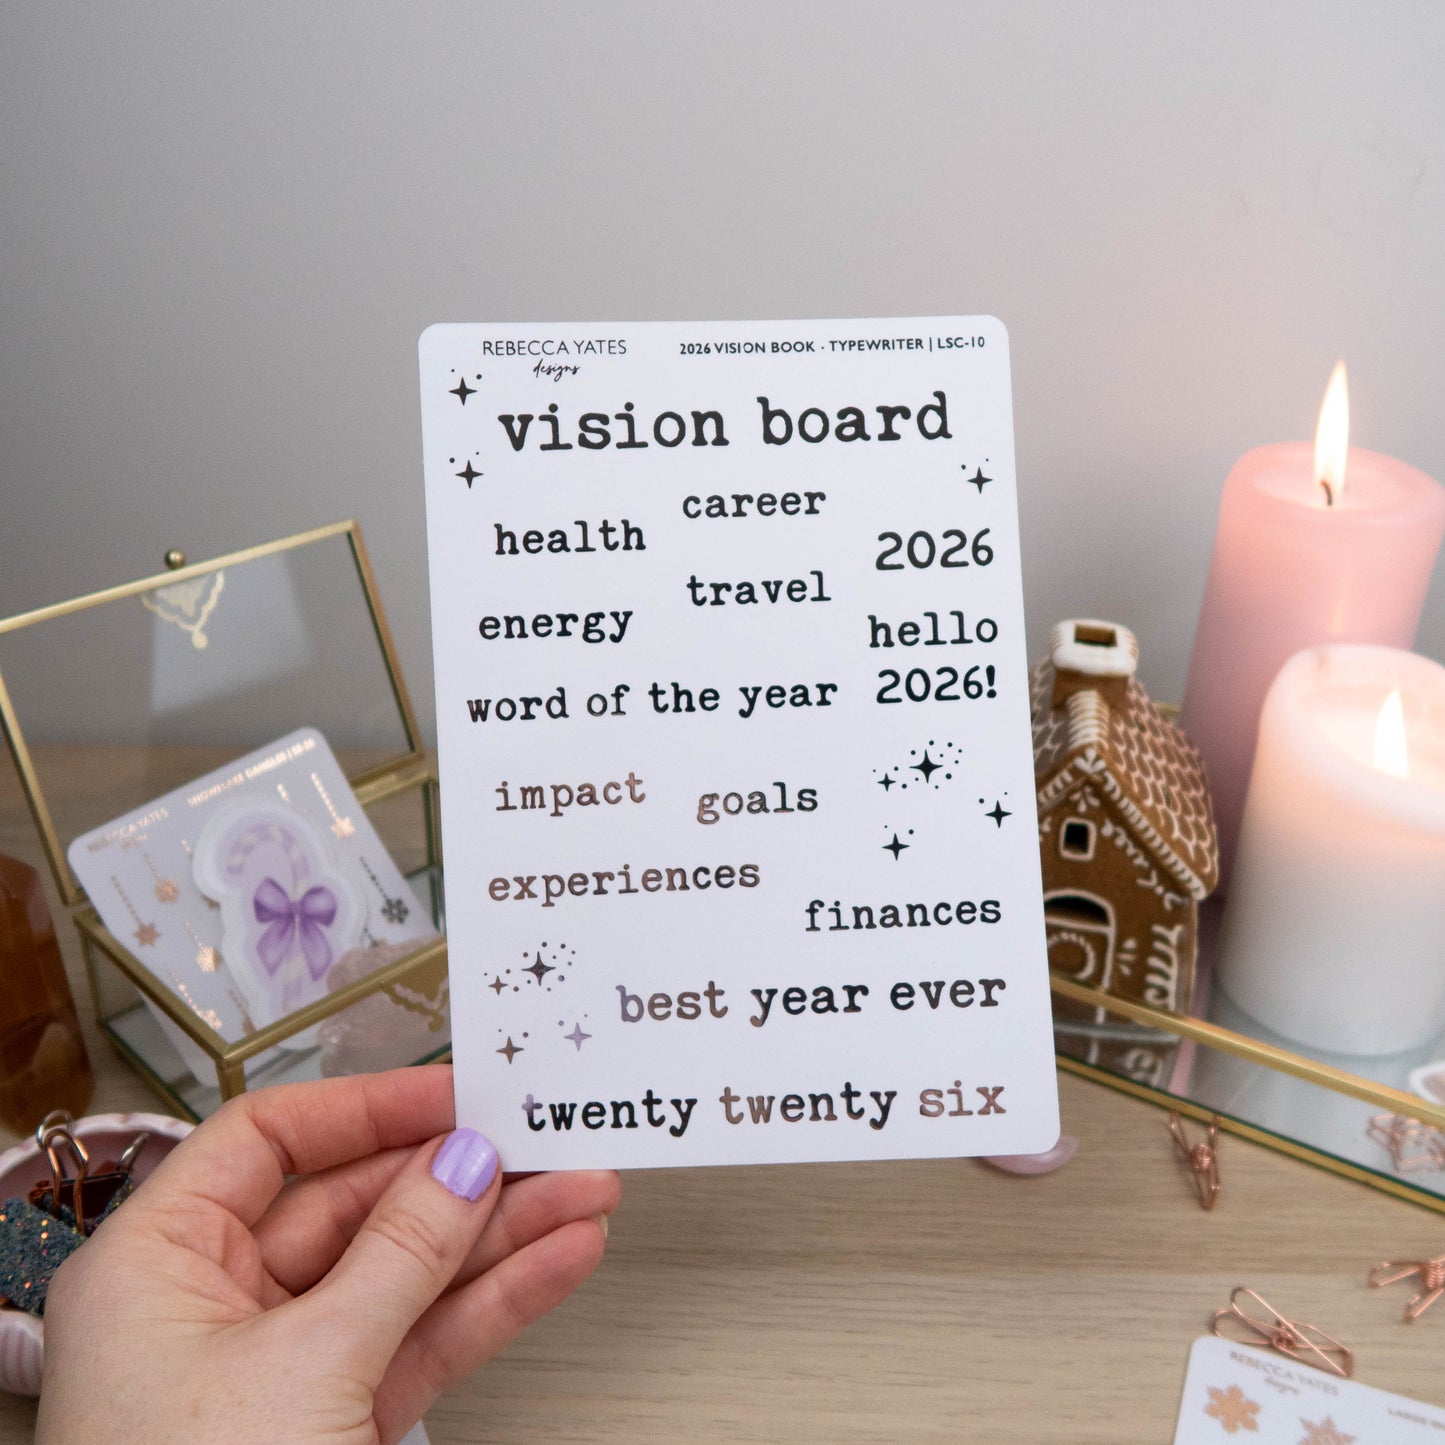 REBECCA YATES
designs
2026 VISION BOOK · TYPEWRITER | LSC-10
vision board
career
health
2026
travel
energy
hello
2026!
word of the year
impact
goals
experiences
finances
best year ever
twenty twenty six
SNOWFLAKE DANGLER | SE-26
REBECCA YATES
REBECCA YATES
designs
LARGE